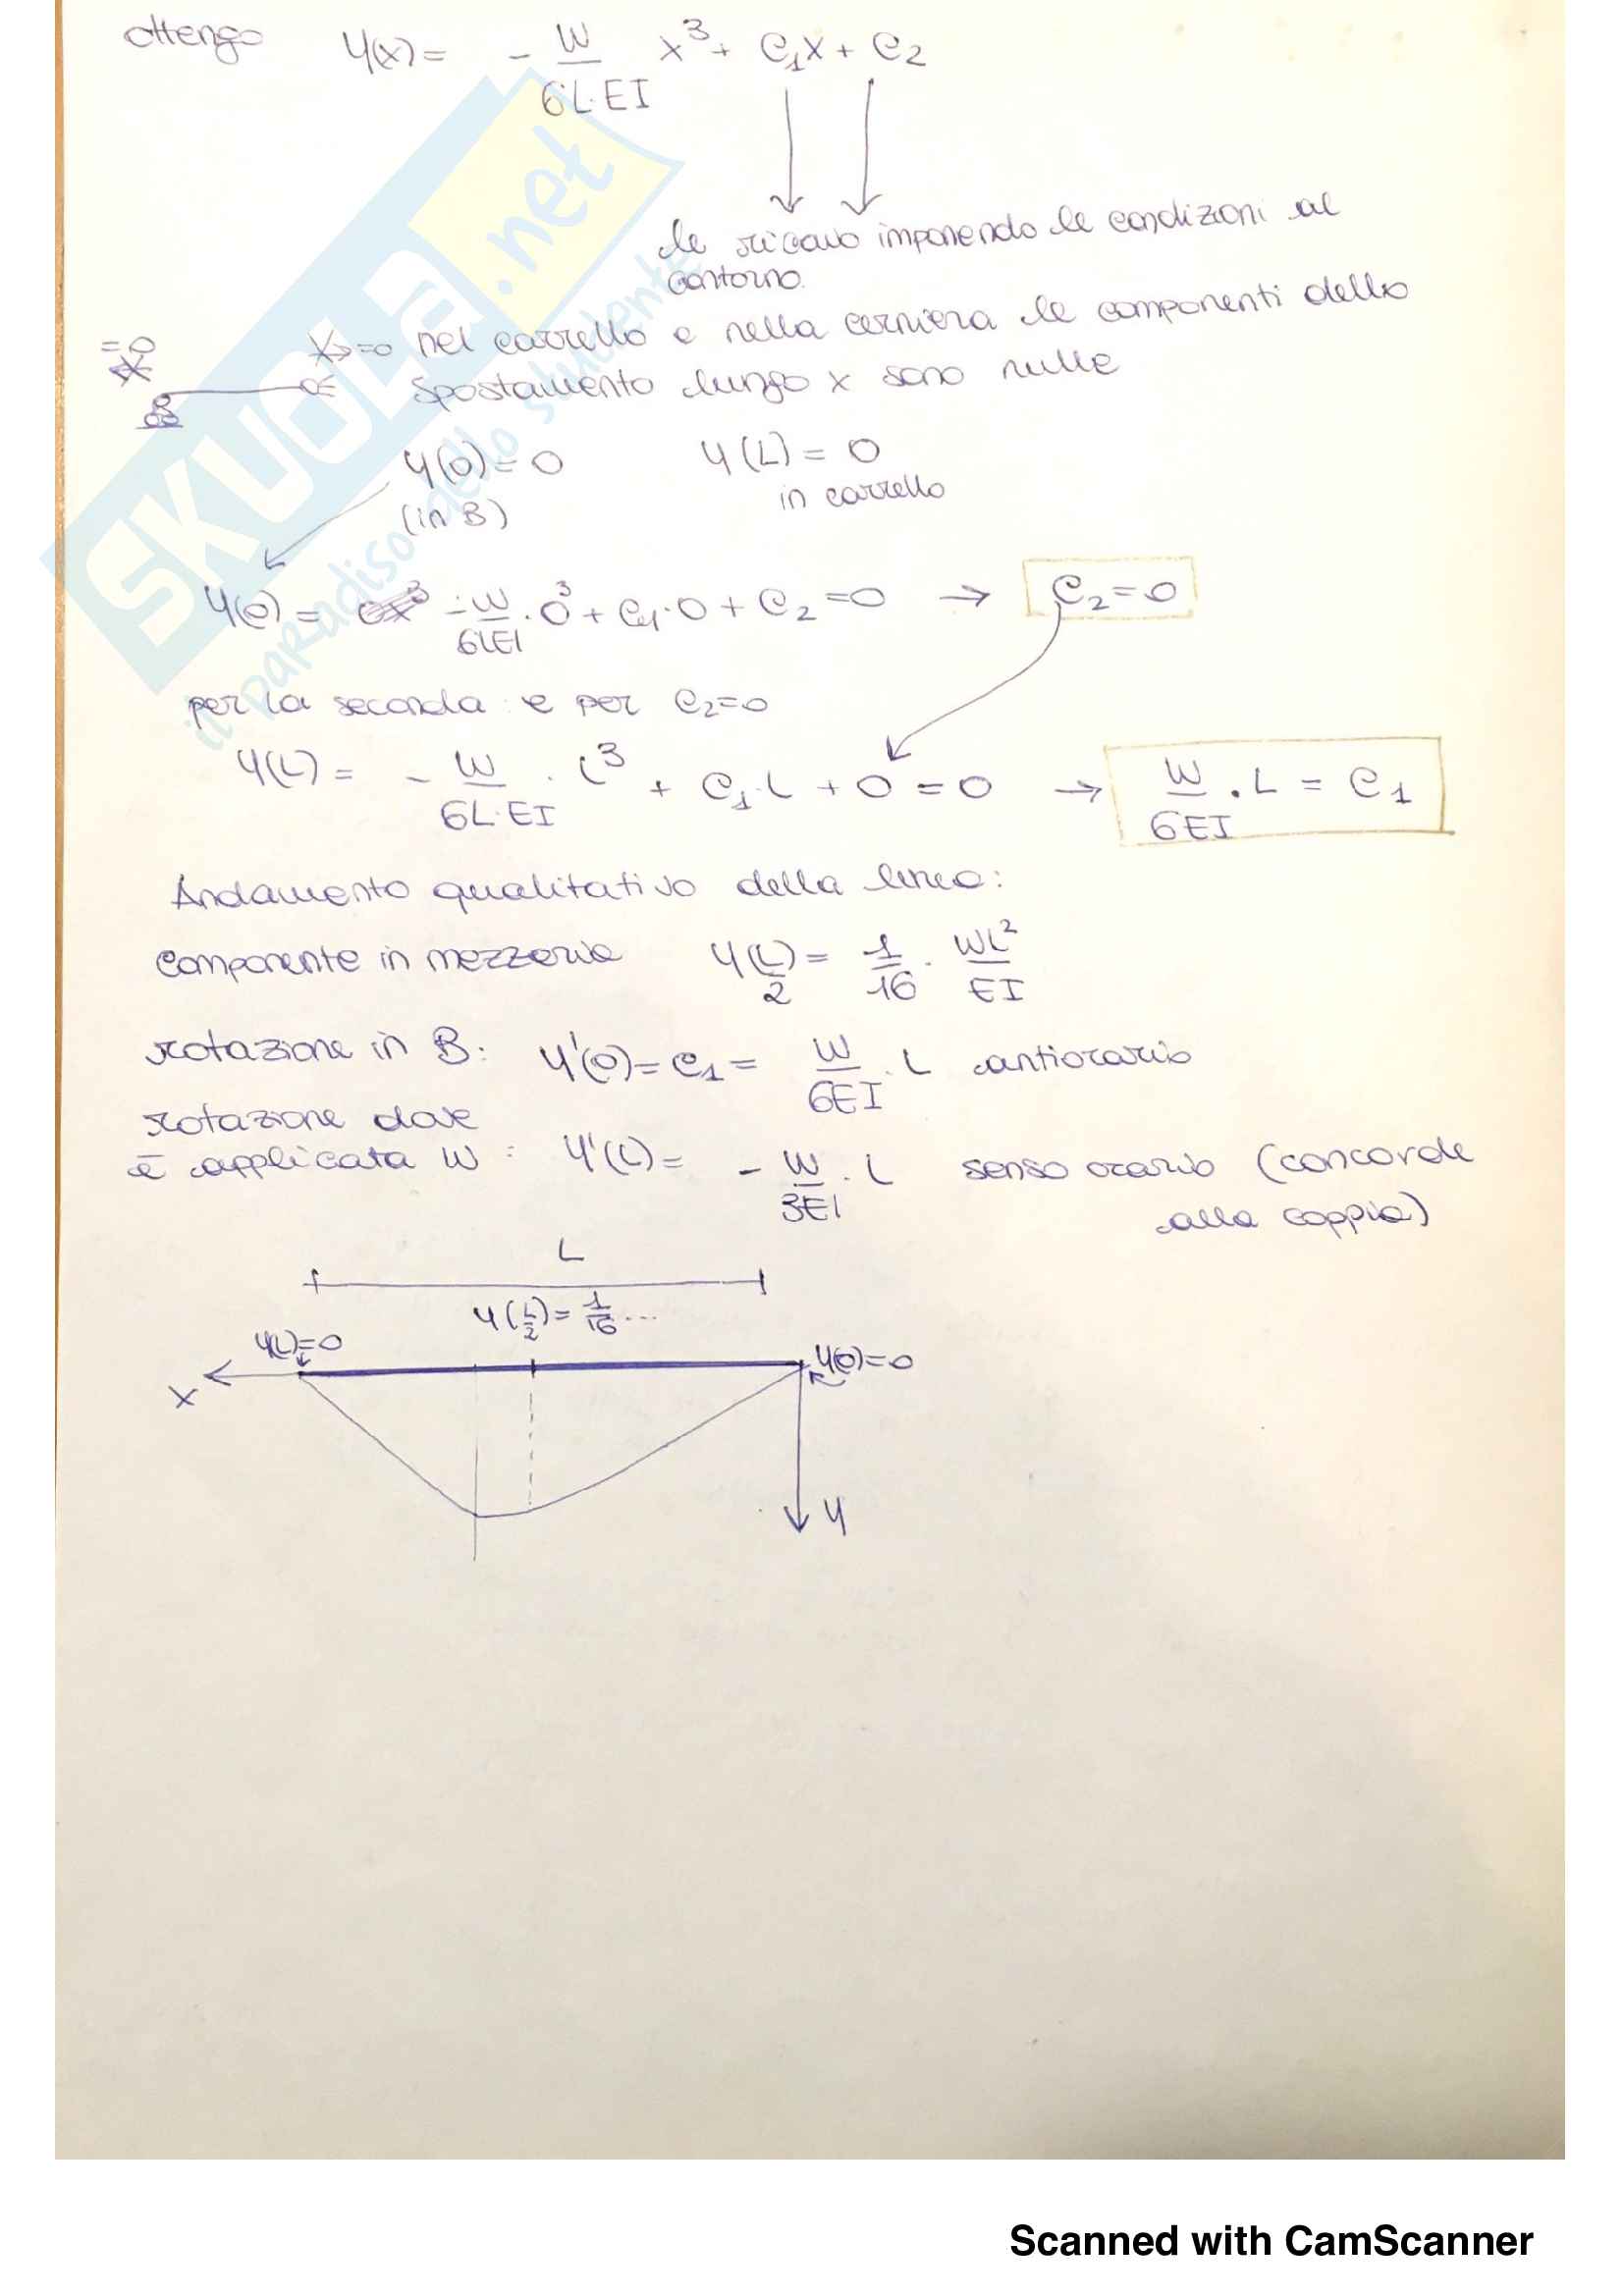 ottengo y(x) = - W/(6L·EI) x³ + C₁x + C₂
le ricavo imponendo le condizioni al
contorno.
=0 x=0 nel carrello e nella cerniera le componenti dello
B spostamento lungo x sono nulle
y(0) = 0 y(L) = 0
(in B) in carrello
y(0) = - W/(6LEI) · 0³ + C₁·0 + C₂ = 0 → C₂ = 0
per la seconda e per C₂=0
y(L) = - W/(6L·EI) · L³ + C₁·L + 0 = 0 → W/(6EI) · L = C₁
Andamento qualitativo della linea:
componente in mezzeria y(L/2) = 1/16 · WL²/EI
rotazione in B: y'(0) = C₁ = W/(6EI) · L antiorario
rotazione dove
è applicata W : y'(L) = - W/(3EI) · L senso orario (concorde
alla coppia)
L
y(L/2) = 1/16 ...
y(L)=0 y(0)=0
x
y
SKUOLA.net
il paradiso dello studente
Scanned with CamScanner